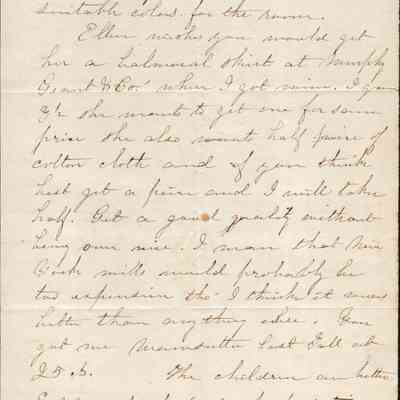 suitable colors for the room.
Ellen wishes you would get
her a balmoral skirt at Murphy
Grant & Co. where I got mine. I gave
she wants to get one for same
price she also want half piece of
cotton cloth and if you think
best get a piece and I will take
half. Get a good quality without
being over nice. I mean that New
York mills would probably be
too expensive tho' I think it wears
better than anything else. You
got me last Fall at
25 c. The children are better